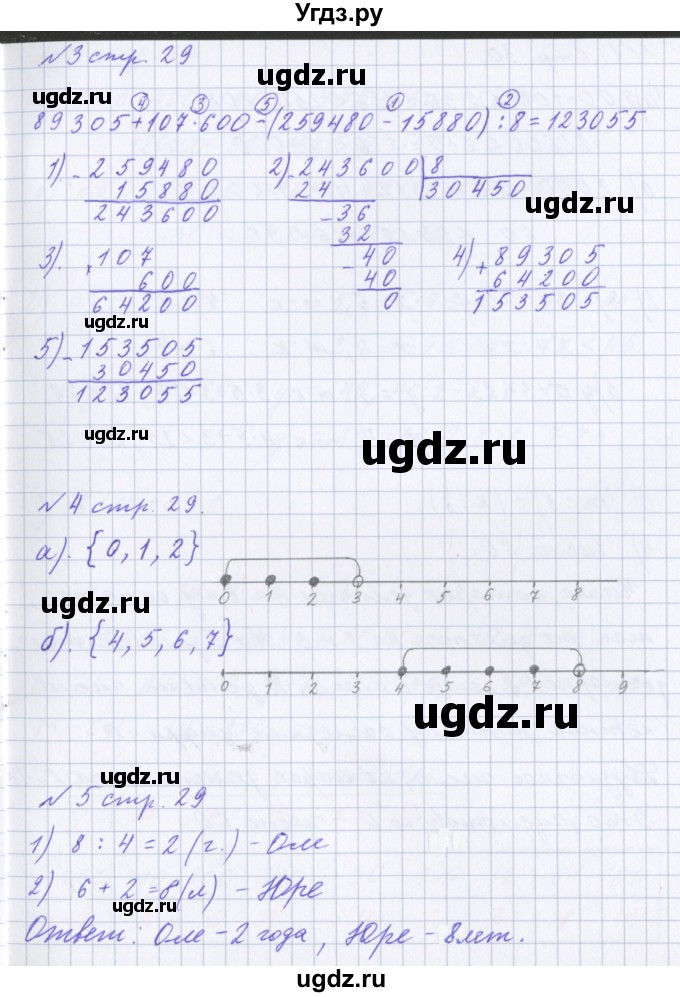 Угдз.ру
№3 стр. 29
ugdz.ru
④ ③ ⑤ ① ②
89305+107·600-(259480-15880):8=123055
1) - 259480 2) - 243600 | 8
15880 24 30450
ugdz.ru
243600 - 36
32
3). × 107 - 40 4) + 89305
600 40 64200
64200 0 153505
ugdz.ru
5) - 153505
30450
123055
ugdz.ru
ugdz.ru
№4 стр. 29.
а). {0, 1, 2}
0 1 2 3 4 5 6 7 8
ugdz.ru
б). {4, 5, 6, 7}
0 1 2 3 4 5 6 7 8 9
ugdz.ru
ugdz.ru
№5 стр. 29
1) 8 : 4 = 2 (г.) - Оле
2) 6 + 2 = 8(л) - Юре
ugdz.ru
Ответ: Оле - 2 года, Юре - 8 лет.
ugdz.ru